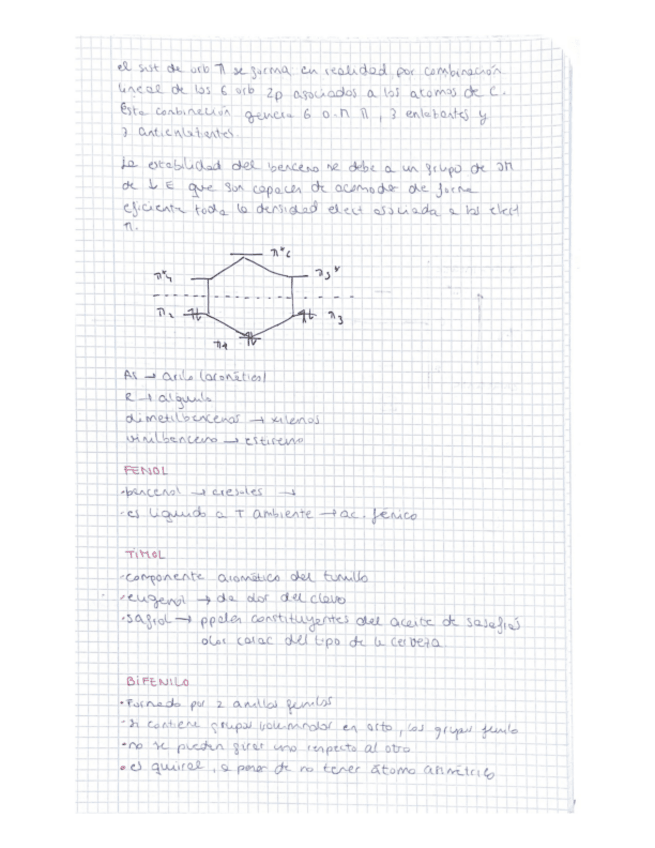 el sist de orb π se forma en realidad por combinación
lineal de los 6 orb 2p asociados a los atomos de C.
Esta combinación genera 6 o.m π, 3 enlatantes y
3 antienlatantes.
La estabilidad del benceno se debe a un grupo de OM
de ↓ E que son capaces de acomodar de forma
eficiente toda la densidad elect asociada a los elect
π.
π*6
π*4 π5*
π2 π3
π1
Ar → arilo (aromático)
R → alquilo
dimetilbencenos → xilenos
vinilbenceno → estireno
FENOL
·bencenol → cresoles →
·es líquido a T ambiente → ac. fénico
TIMOL
·componente aromático del tomillo
·eugenol → da olor del clavo
·safrol → ppales constituyentes del aceite de sasafrás
olor carac del tipo de la cerveza
BIFENILO
·Formado por 2 anillos fenilos
·si contiene grupos voluminosos en orto, los grupos fenilo
·no se pueden girar uno respecto al otro
·es quiral, a pesar de no tener átomo asimétrico